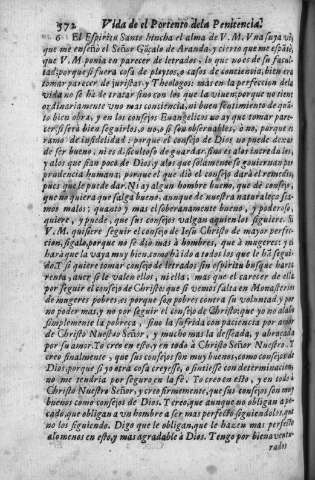 372 Vida de el Portento de la Penitencia.
6 El Espiritu Santo hincha el alma de V. M. Vna suya vi,
que me enseñò el Señor Gõçalo de Aranda: y cierto que me espãtè,
que V. M. ponia en parecer de letrados, lo que no es de su facul-
tad; porque si fuera cosa de pleytos, ò casos de conciencia, bien era
tomar parecer de juristas, y Theologos: màs en la perfeccion dela
vida no se ha de tratar sino con los que la viuen: porque no tiene
ordinariamente vno mas conciencia, ni buen sentimiento de quã-
to bien obra, y en los consejos Euangelicos no ay que tomar pare-
cer, si serà bien seguirlos, ò no, ò si son obseruables, ò no, porque es
ramo de infidelidad; porque el consejo de Dios no puede dexar
de ser bueno, ni es dificultoso de guardar, sino es alos incredulos,
y alos que fian poco de Dios, y alos que solamente se gouiernan por
prudencia humana; porque el que diò el consejo darà el remedio,
pues que le puede dar. Ni ay algun hombre bueno, que dè consejo,
que no quiera que salga bueno, aunque de nuestra naturaleça sea-
mos malos: quanto y mas el soberanamente bueno, y poderoso,
quiere, y puede, que sus consejos valgan a quien los siguiere. Si
V. M. quisiere seguir el consejo de Iesu Christo de mayor perfec-
cion, sigalo, porque no se diò màs à hombres, que à mugeres: y èl
harà que la vaya muy bien, como ha ido à todos los que le hã segui-
do. Y si quiere tomar consejo de letrados sin espiritu busque harta
renta, auer si le valen ellos, ni ella, mas que el carecer de ella
por seguir el consejo de Christo: que si vemos falta en Monasterios
de mugeres pobres, es porque son pobres contra su voluntad, y por
no poder mas, y no por seguir el consejo de Christo: que yo no alabo
simplemente la pobreça, sino la sufrida con paciencia por amor
de Christo Nuestro Señor, y mucho mas la desseada, y abraçada
por su amor. Yo creo en esto, y en todo à Christo Señor Nuestro. Y
creo finalmente, que sus consejos son muy buenos, como consejos de
Dios: porque si yo otra cosa creyesse, ò sintiesse con determinacion
no me tendria por seguro en la fè. Yo creo en esto, y en todo à
Christo Nuestro Señor, y creo firmemente, que sus consejos son muy
buenos como consejos de Dios. Y creo, que aunque no obligan a pe-
cado, que obligan a vn hombre a ser mas perfecto siguiendolos, que
no los siguiendo. Digo que le obligan, que le hazen mas perfecto
alomenos en esto, y mas agradable à Dios. Tengo por bienauentu-
rados